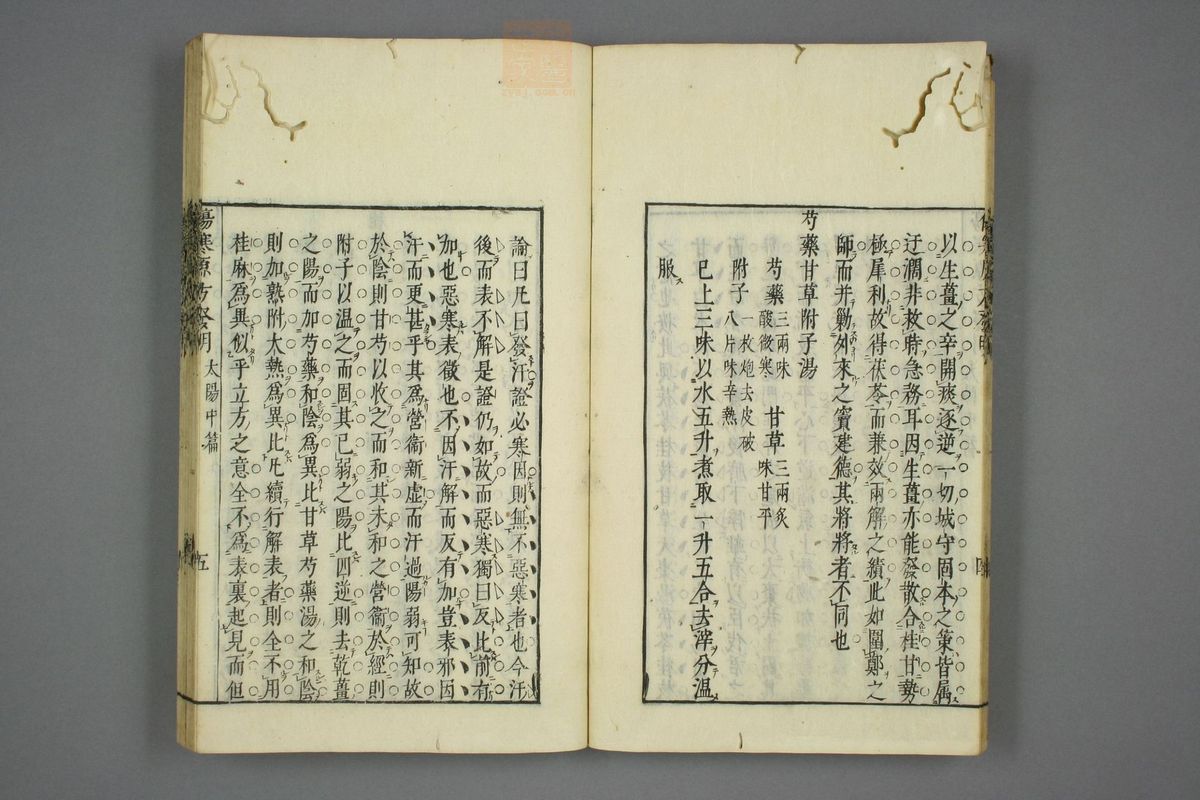 以生薑之辛開痰逐逆一切城守固本之策皆属
迂濶非救時急務耳因生薑亦能發散合桂甘勢
極犀利故得茯苓而兼效兩解之績此如圍鄭之
師而并勦外來之竇建德其將將者不同也
芍藥甘草附子湯
芍藥三兩味酸微寒 甘草三兩炙味甘平
附子一枚炮去皮破八片味辛熱
巳上三味以水五升煮取一升五合去滓分温
服
論曰凡曰發汗證必寒因則無不惡寒者也今汗
後而表不解是證仍如故而惡寒獨曰反比前有
加也惡寒表徵也不因汗解而反有加豈表邪因
汗而更甚乎其爲營衞新虛而汗過陽弱可知故
於陰則甘芍以收之而和其未和之營衞於經則
附子以温之而固其已弱之陽比四逆則去乾薑
之陽而加芍藥和陰爲異比甘草芍藥湯之和陰
則加熟附大熱爲異比凡續行解表者則全不用
桂麻爲異似乎立方之意全不爲表裏起見而但
傷寒原方發明 太陽中篇 五
zysj.com.cn